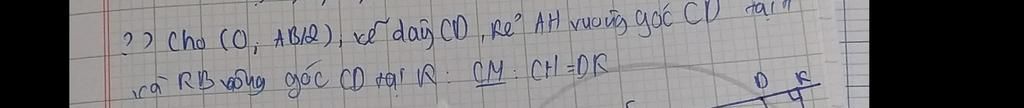 ?) Cho (O; AB/2), vẽ dây CD, Kẻ AH vuông góc CD tại H
và KB vuông góc CD tại K. CM: CH = DK
D K